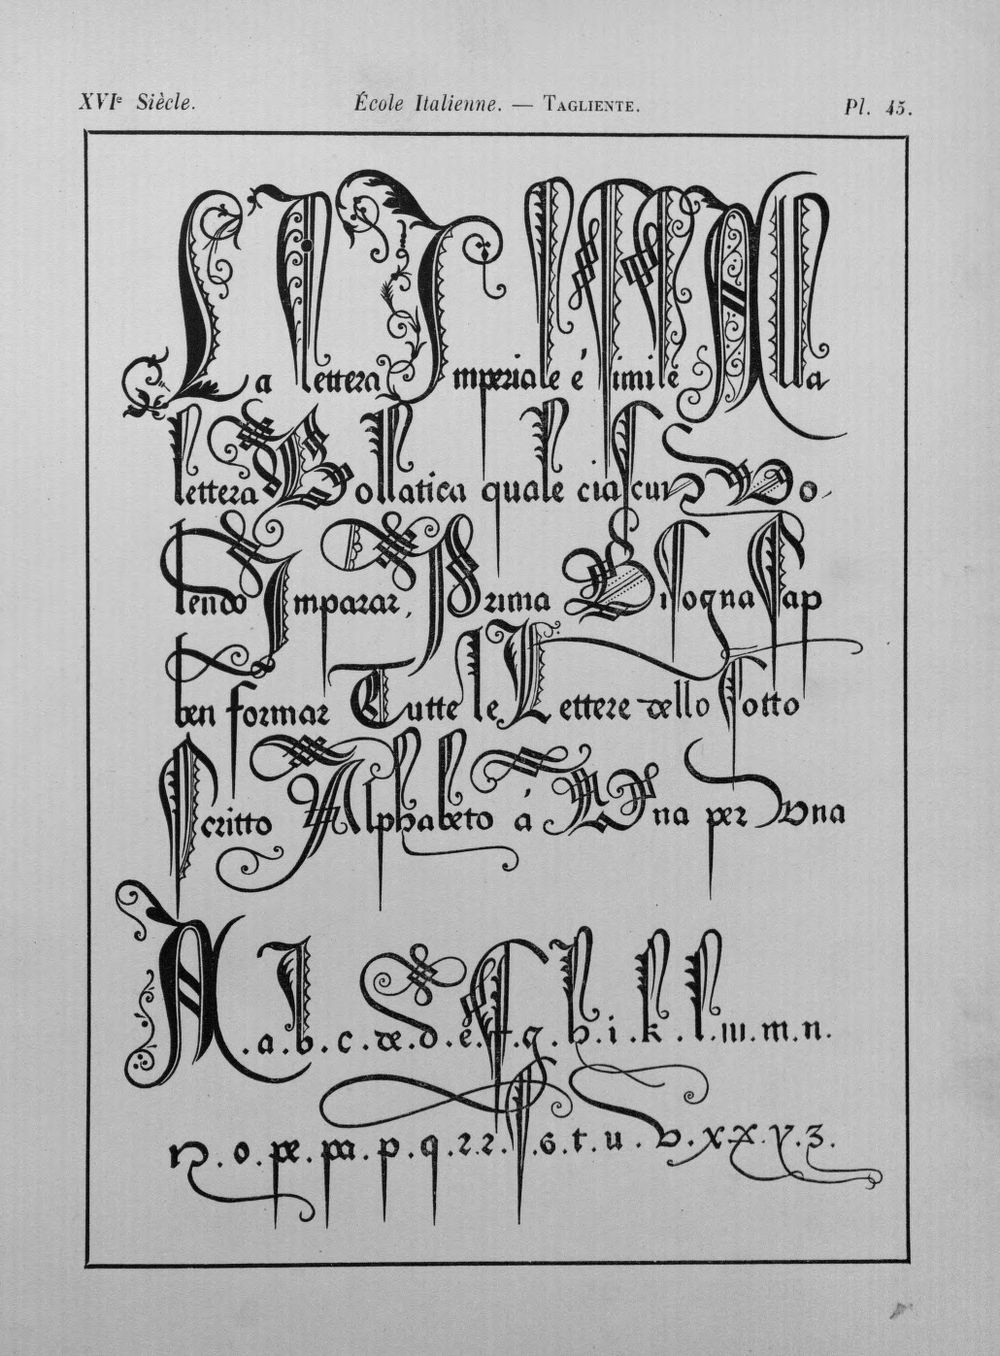 XVIe Siècle. École Italienne. — TAGLIENTE. Pl. 45.
La lettera Imperiale é simile Ala
lettera Bollatica quale ciascun Vo-
lendo Imparar, Prima Bisogna Sap
ben formar Tutte le Lettere dello Sotto
Scritto Alphabeto á Una per Vna
A .a.b.c.de.d.e.f.g.h.i.k.l.m.m.n.
n.o.pe.pa.p.q.r.r.s.s.t.u.v.x.x.y.z.